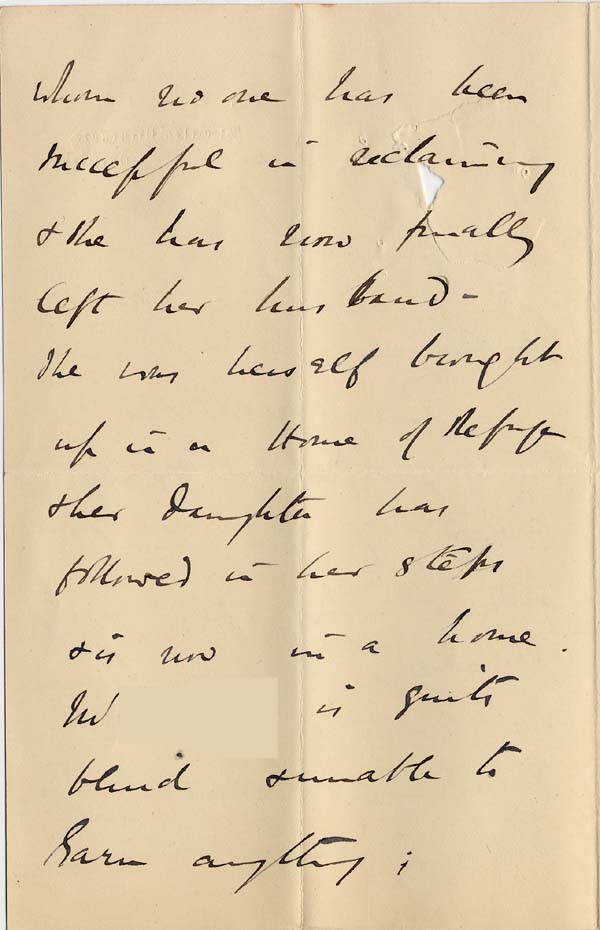 whom no one has been
successful in reclaiming
& she has now finally
left her husband -
She was herself brought
up in a Home of Refuge
& her daughter has
followed in her steps
& is now in a home.
is quite
blind & unable to
earn anything ;